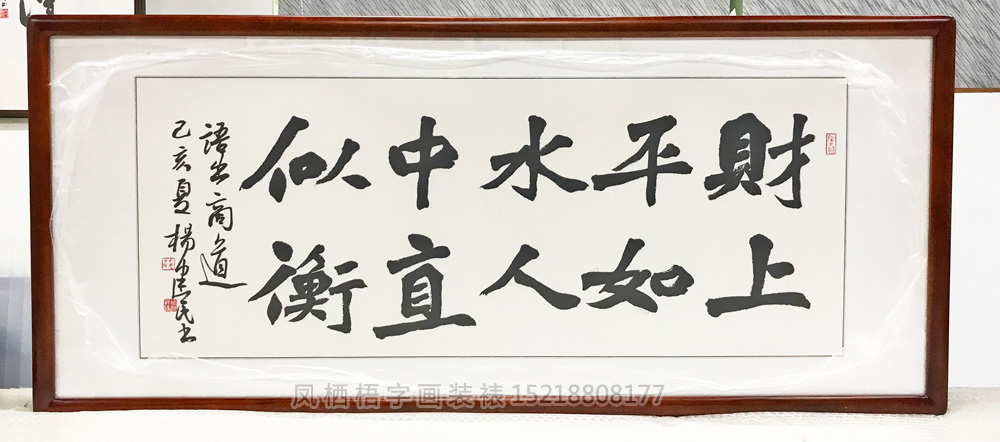 財上
平如
水人
中直
似衡
語出商道
己亥夏楊建民书
凤栖梧字画装裱 15218808177